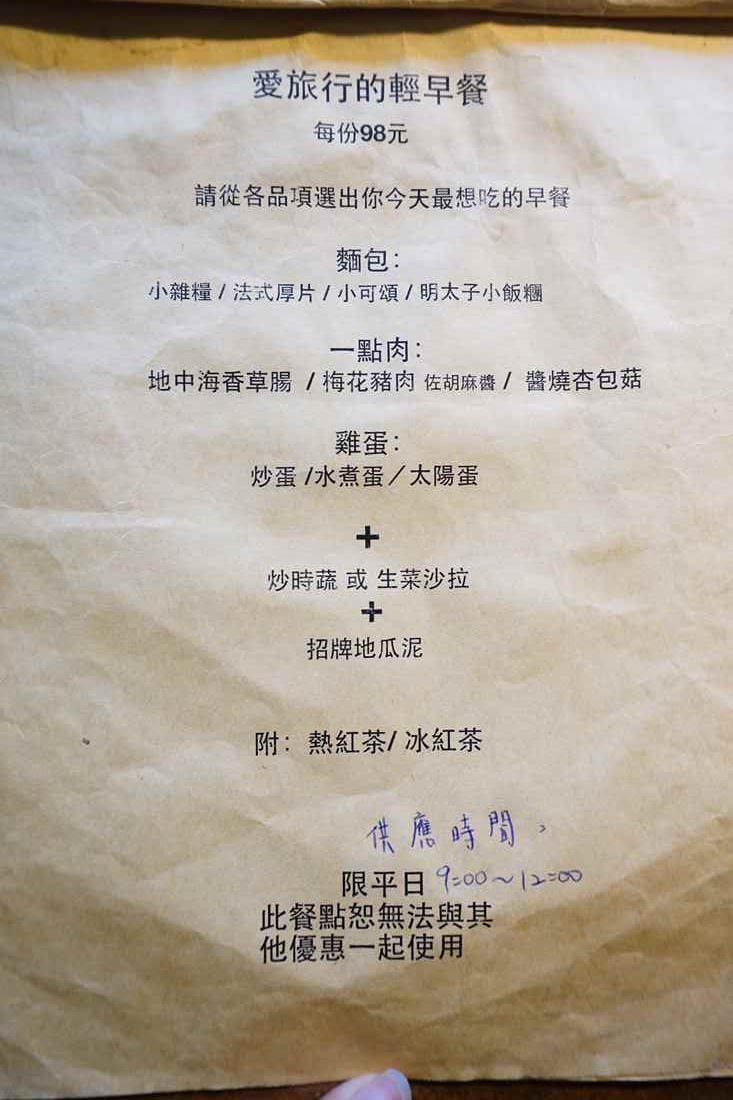 愛旅行的輕早餐
每份98元
請從各品項選出你今天最想吃的早餐
麵包:
小雜糧 / 法式厚片 / 小可頌 / 明太子小飯糰
一點肉:
地中海香草腸 / 梅花豬肉 佐胡麻醬 / 醬燒杏包菇
雞蛋:
炒蛋 /水煮蛋／太陽蛋
+
炒時蔬 或 生菜沙拉
+
招牌地瓜泥
附: 熱紅茶/ 冰紅茶
供應時間、
限平日 9:00~12:00
此餐點恕無法與其
他優惠一起使用